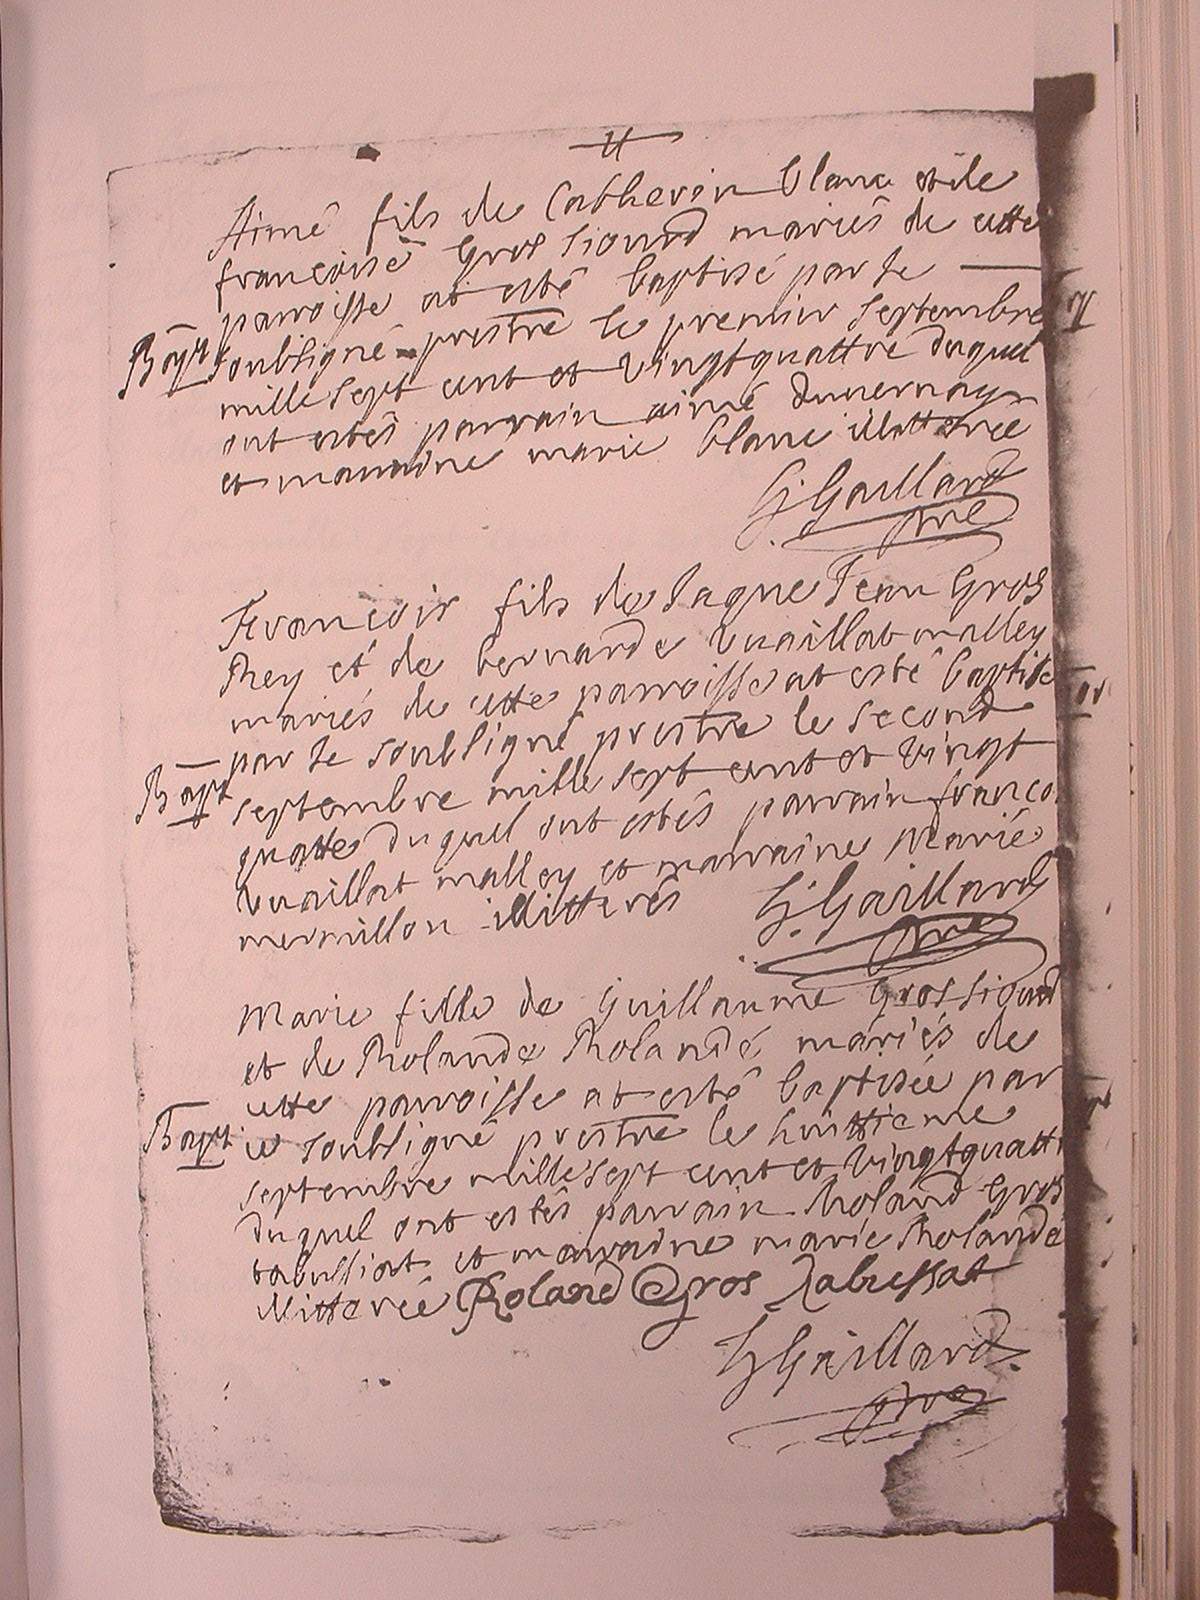 Aimé fils de Catherin blanc et de
francoise Gros Siourd mariés de cette
parroisse at esté baptisé par le
Bapt soubsigné prestre le premier septembre
mille sept cent et vingtquattre duquel
ont estés parrain aimé duvernay
et marraine marie blanc illitterée
G Gaillard
pre
Francois fils de Jaque Jean Gros
Rey et de bernarde Vuaillat malley
mariés de cette parroisse at esté baptisé
par le soubsigné prestre le second
Bapt septembre mille sept cent et vingt
quatte duquel ont estés parrain franco
Vuaillat malley et marraine Marie
mermillon illitterés G. Gaillard
pre
Marie fille de Guillaume Gros Siourd
et de Rolande Rolande mariés de
cette parroisse at esté baptisée par
Bapt. ie soubsigné prestre le huittieme
septembre mille sept cent et vingtquattr
duquel ont estés parrain Roland Gros
tabussiat et marraine marie Rolande
illitterée Roland Gros Tabussat
G Gaillard
pre